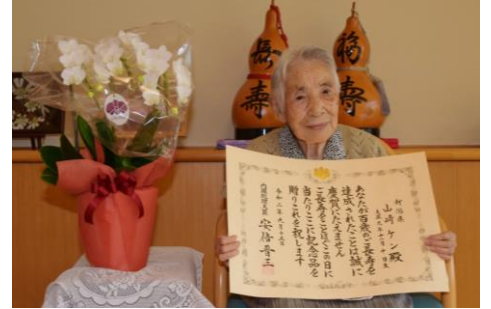 寿
福
寿
新潟県
山崎ケン殿
あなたが百歳のご長寿を
達成されたことは誠に
慶賀にたえません
ご長寿をことほぐこの日に
当たりここに記念品を
贈りこれを祝します
令和二年九月十五日
内閣総理大臣 安倍晋三